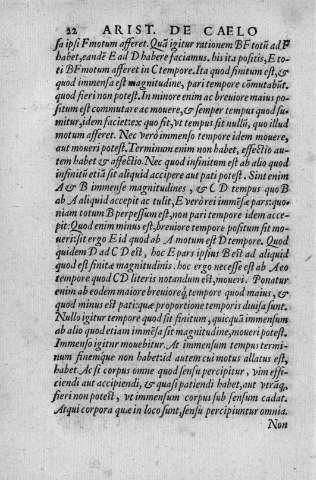 22 ARIST. DE CAELO
sa ipsi F motum afferet. Quã igitur rationem BF totũ ad F
habet, eandẽ E ad D habere faciamus. his ita positis, E to-
ti BF motum afferet in C tempore. Ita quod finitum est, &
quod immensa est magnitudine, pari tempore cõmutabũt.
quod fieri non potest. In minore enim ac breuiore maius po-
situm est commutare ac mouere, & semper tempus quod su-
mitur, idem faciet: ex quo fit, vt tempus sit nullũ, quo illud
motum afferet. Nec verò immenso tempore idem mouere,
aut moueri potest. Terminum enim non habet, effectio au-
tem habet & affectio. Nec quod infinitum est ab alio quod
infinitũ etiã sit aliquid accipere aut pati potest. Sint enim
A & B immensæ magnitudines, & CD tempus quo B
ab A aliquid accepit ac tulit, E verò rei immẽsæ pars: quo-
niam totum B perpessum est, non pari tempore idem acce-
pit: Quod enim minus est, breuiore tempore positum sit mo-
ueri: sit ergo E id quod ab A motum est D tempore. Quod
quidem D ad CD est, hoc E pars ipsius B est ad aliquid
quod est finitæ magnitudinis. hoc ergo necesse est ab A eo
tempore quod CD literis notandum est, moueri. Ponatur
enim ab eodem maiore breuioreq́; tempore quod maius, &
quod minus est pati: quæ proportione temporis diuisa sunt.
Nullo igitur tempore quod sit finitum, quicquã immensum
ab alio quod etiam immẽsa sit magnitudine, moueri potest.
Immenso igitur mouebitur. At immensum tempus termi-
num finemque non habet: id autem cui motus allatus est,
habet. Ac si corpus omne quod sensu percipitur, vim effi-
ciendi aut accipiendi, & quasi patiendi habet, aut vtrãq;
fieri non potest, vt immensum corpus sub sensum cadat.
Atqui corpora quæ in loco sunt, sensu percipiuntur omnia.
Non